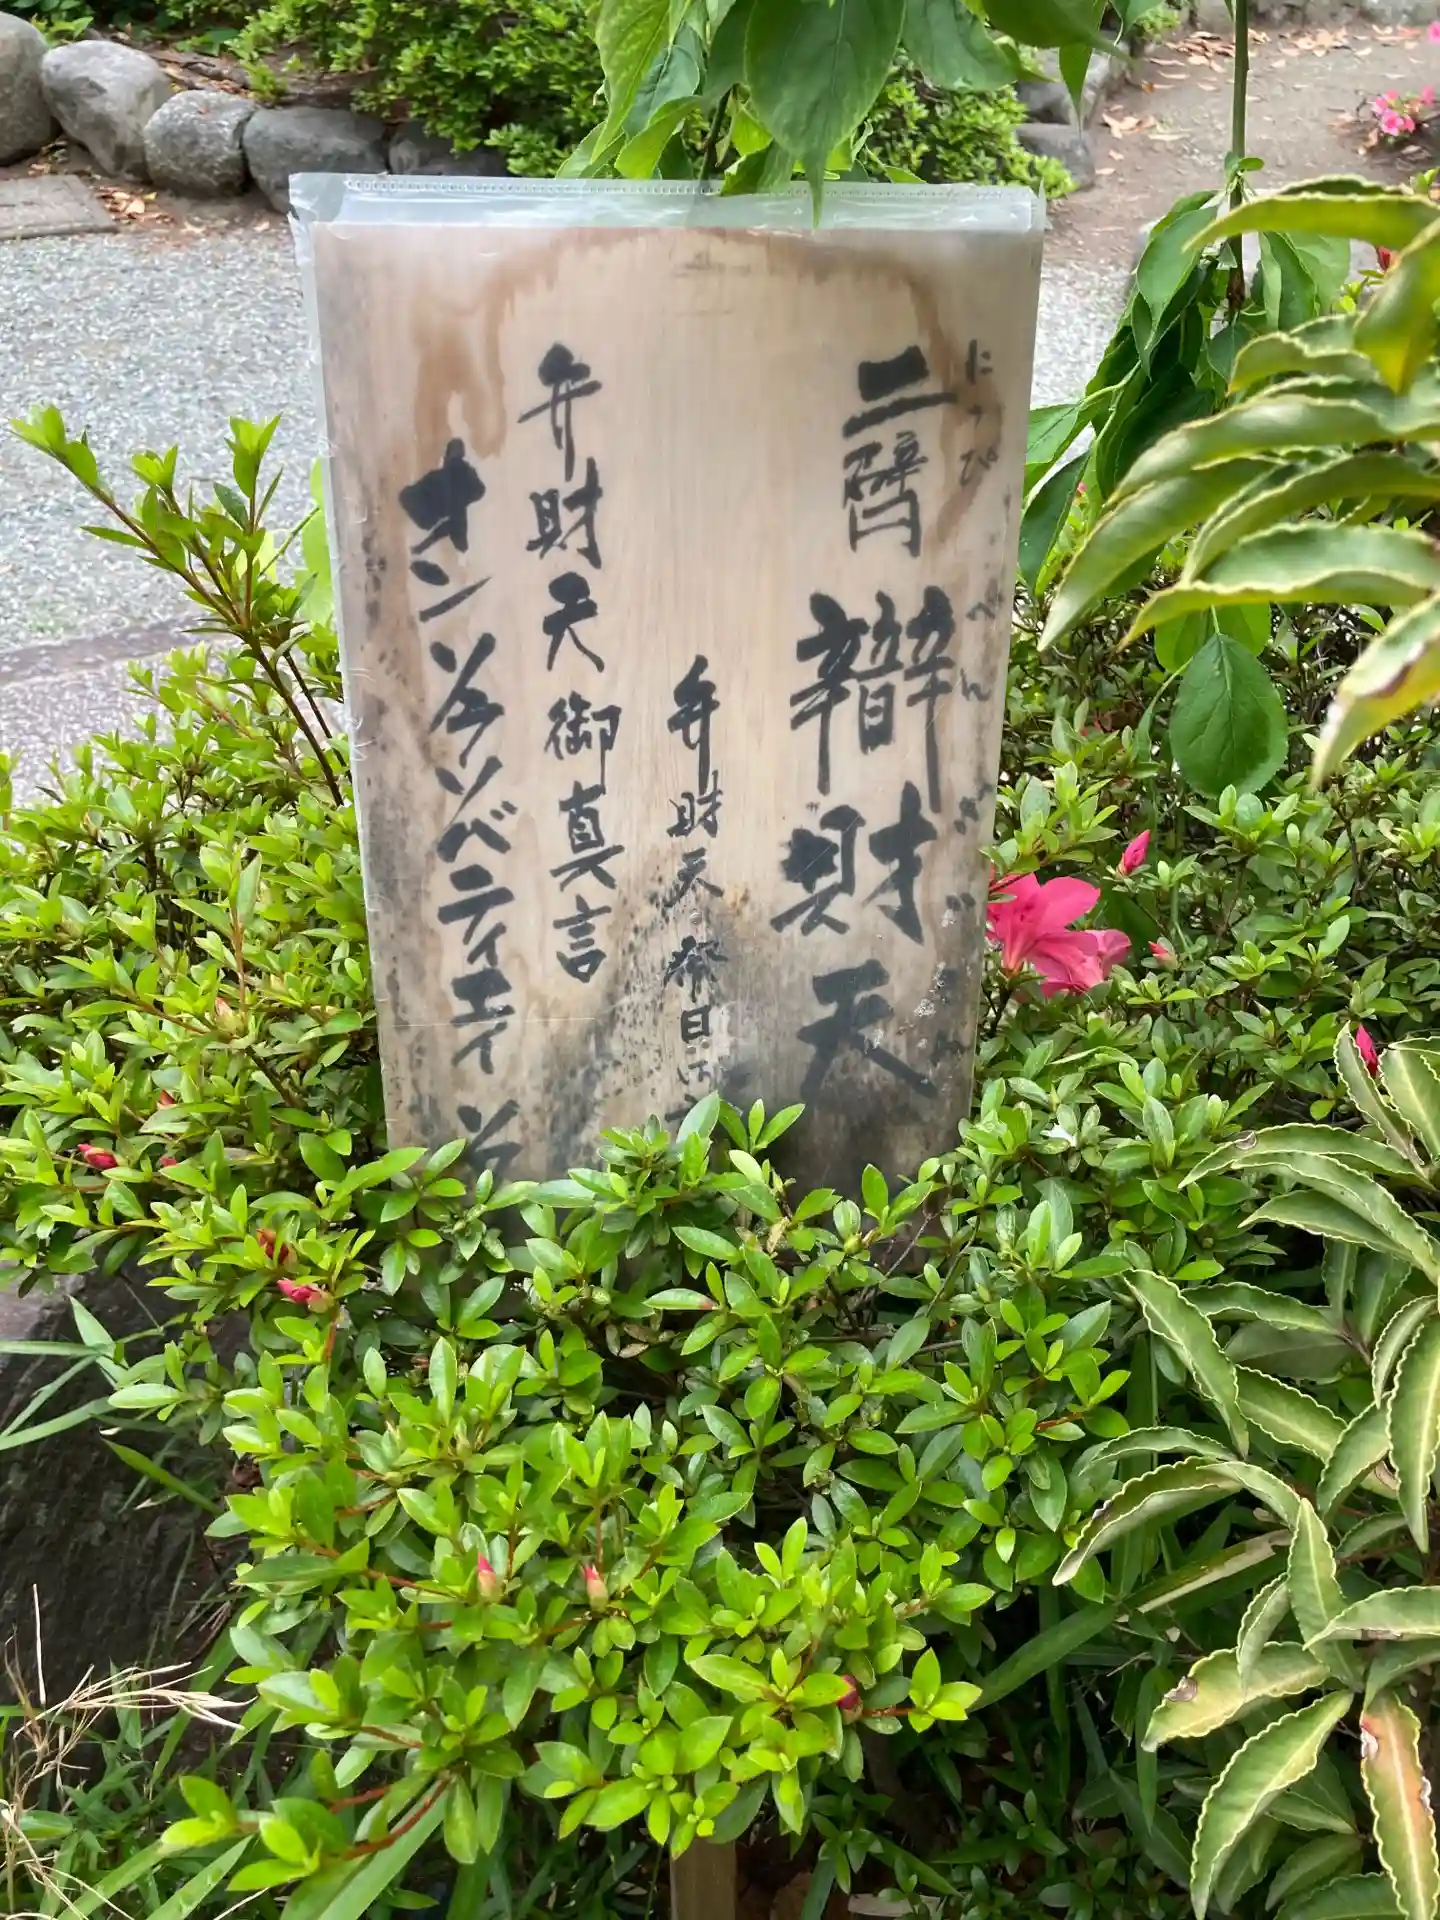 二臂辯財天
にっぴべんざいてん
弁財天祭日は
弁財天御真言
オンソラソバティエイソ